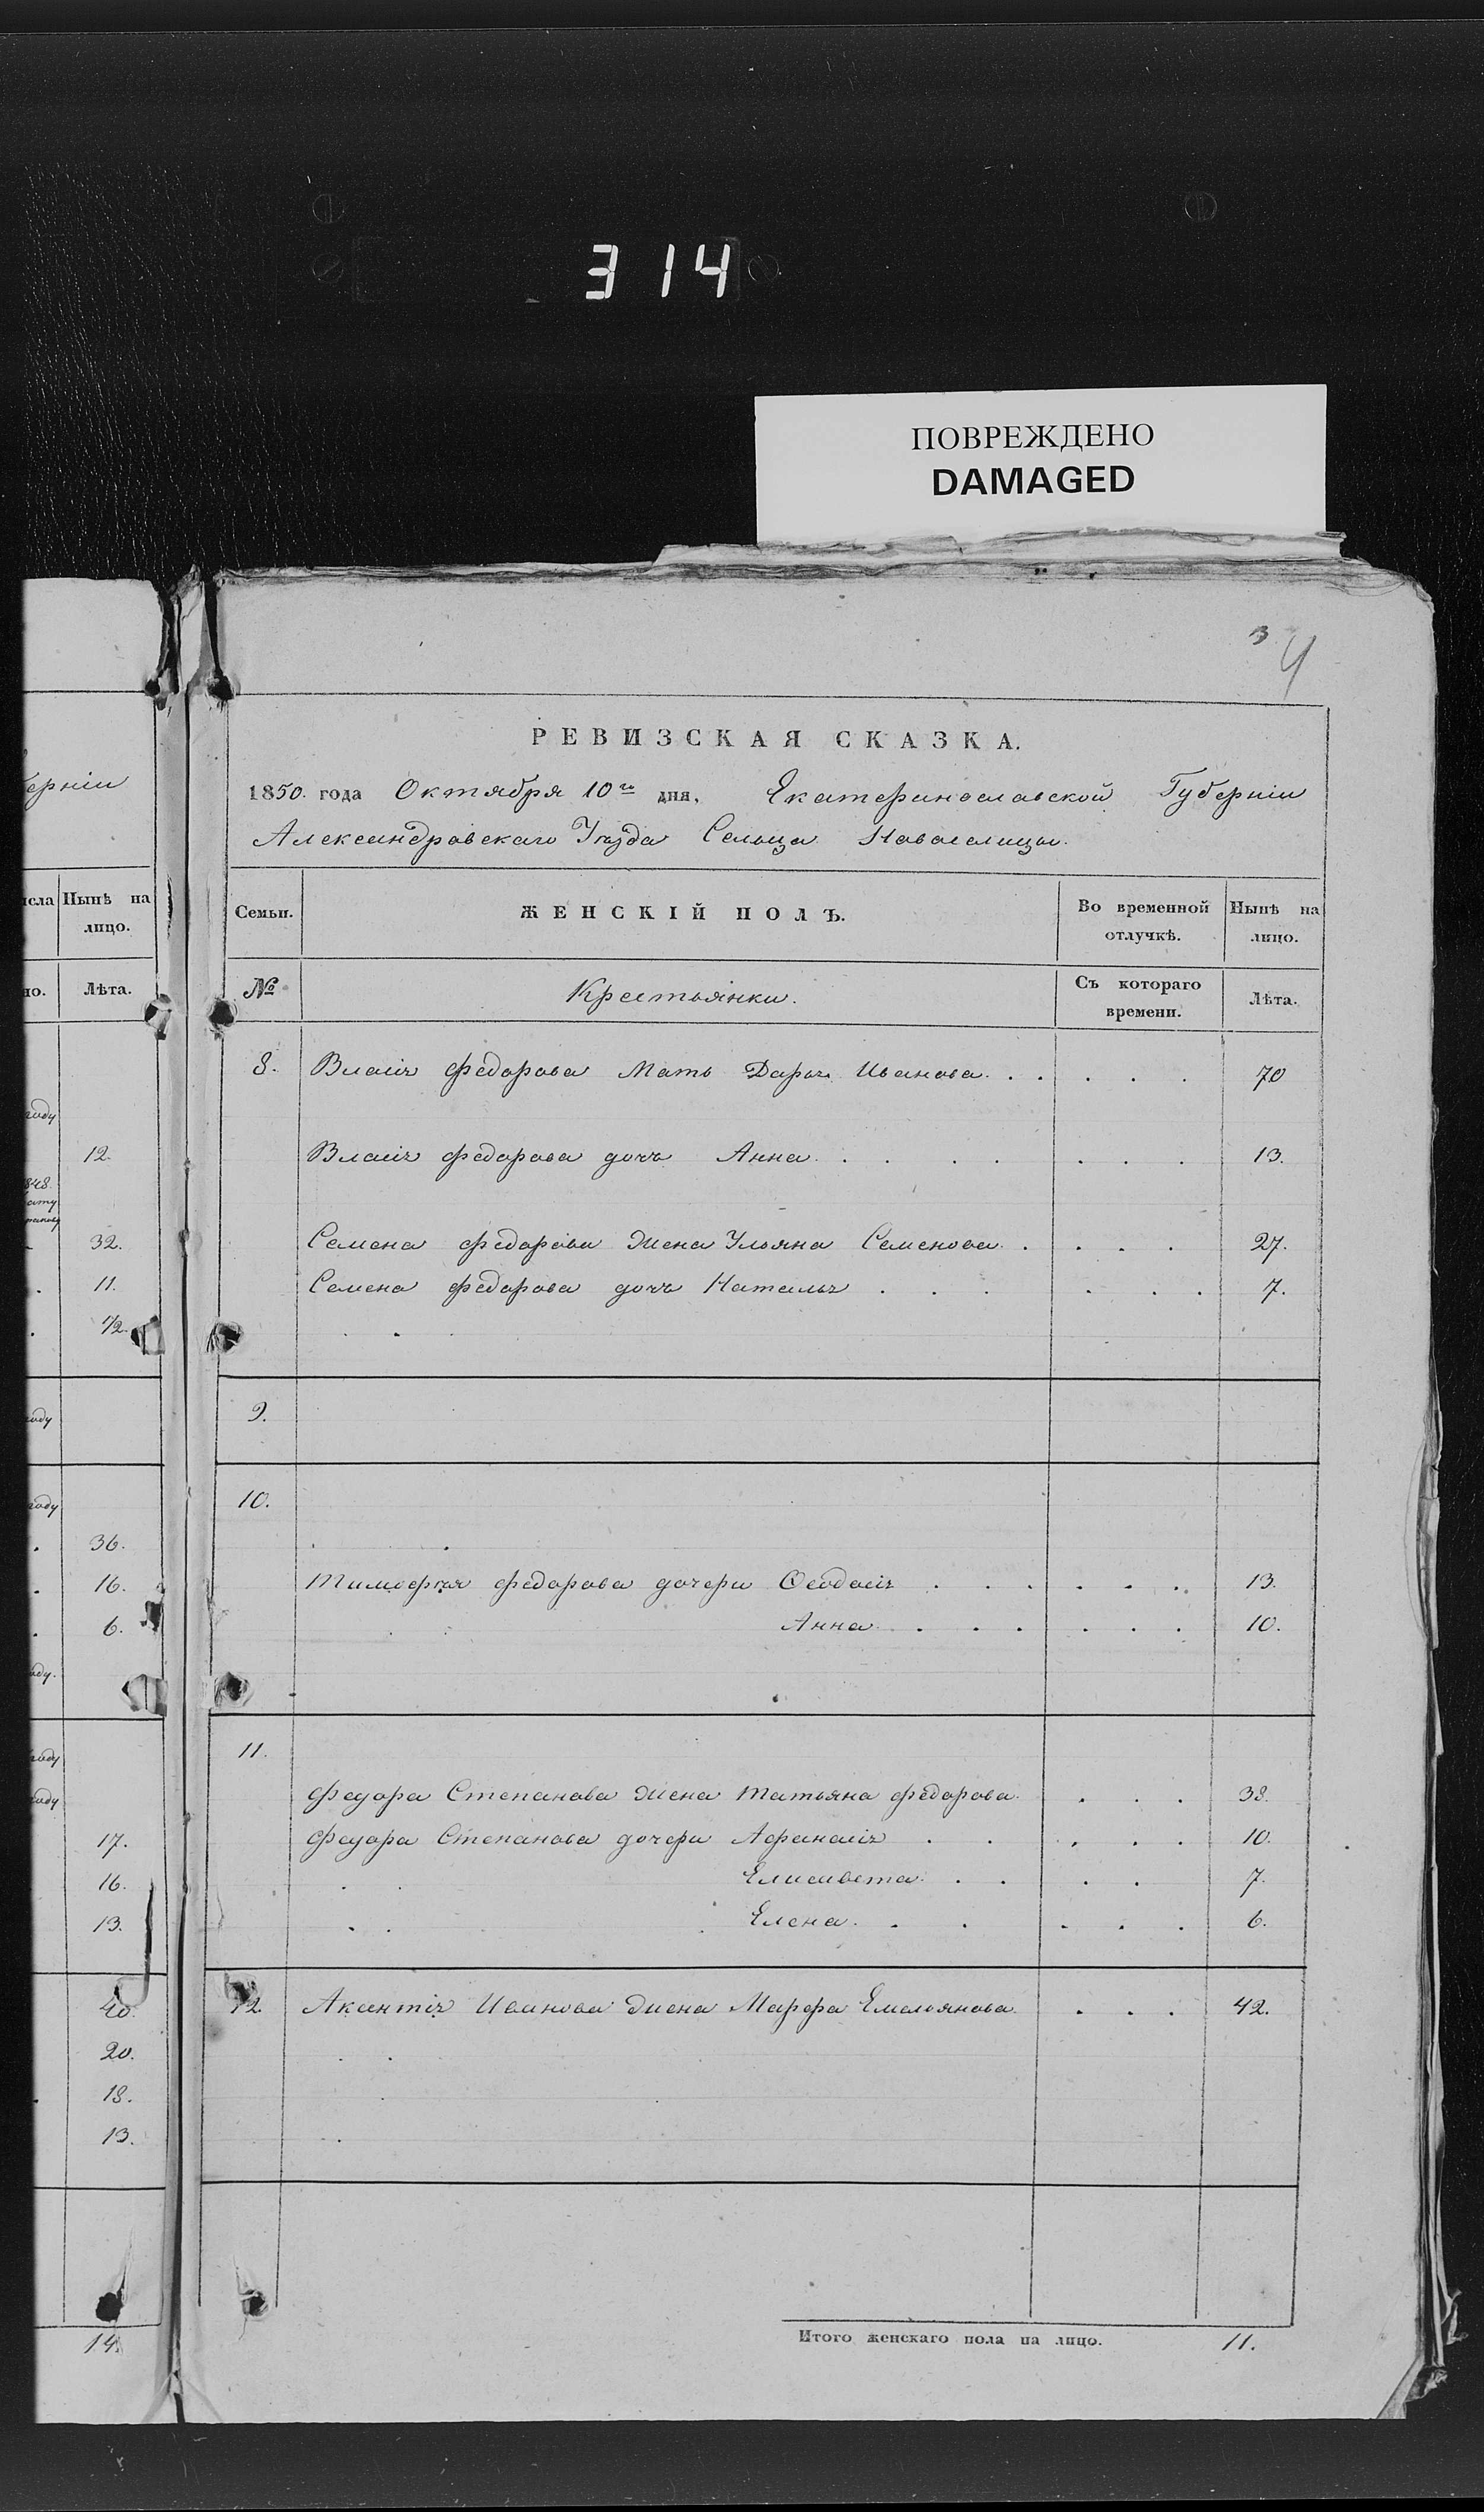 314
ПОВРЕЖДЕНО
DAMAGED
3
4
РЕВИЗСКАЯ СКАЗКА.
1850. года Октября 10го дня, Екатеринославской Губерніи
Александровскаго Уѣзда Сельца Новоселицы.
Семьи. ЖЕНСКІЙ ПОЛЪ. Во временной отлучкѣ. Нынѣ на лицо.
№ Крестьянки. Съ котораго времени. Лѣта.
8. Власія Федорова Мать Дарья Иванова 70
Власія Федорова дочь Анна 13.
Семена Федорова жена Ульяна Семенова 27.
Семена Федорова дочь Наталья 7.
9.
10.
Тимофея Федорова дочери Феодосія 13.
Анна 10.
11.
Федора Степанова жена Татьяна Федорова 38.
Федора Степанова дочери Афанасія 10.
Елисавета 7.
Елена 6.
12. Аксентія Иванова жена Марфа Емельянова 42.
Итого женскаго пола на лицо. 11.
Нынѣ на лицо.
Лѣта.
12.
32.
11.
1/2.
36.
16.
6.
17.
16.
13.
40.
20.
18.
13.
14.